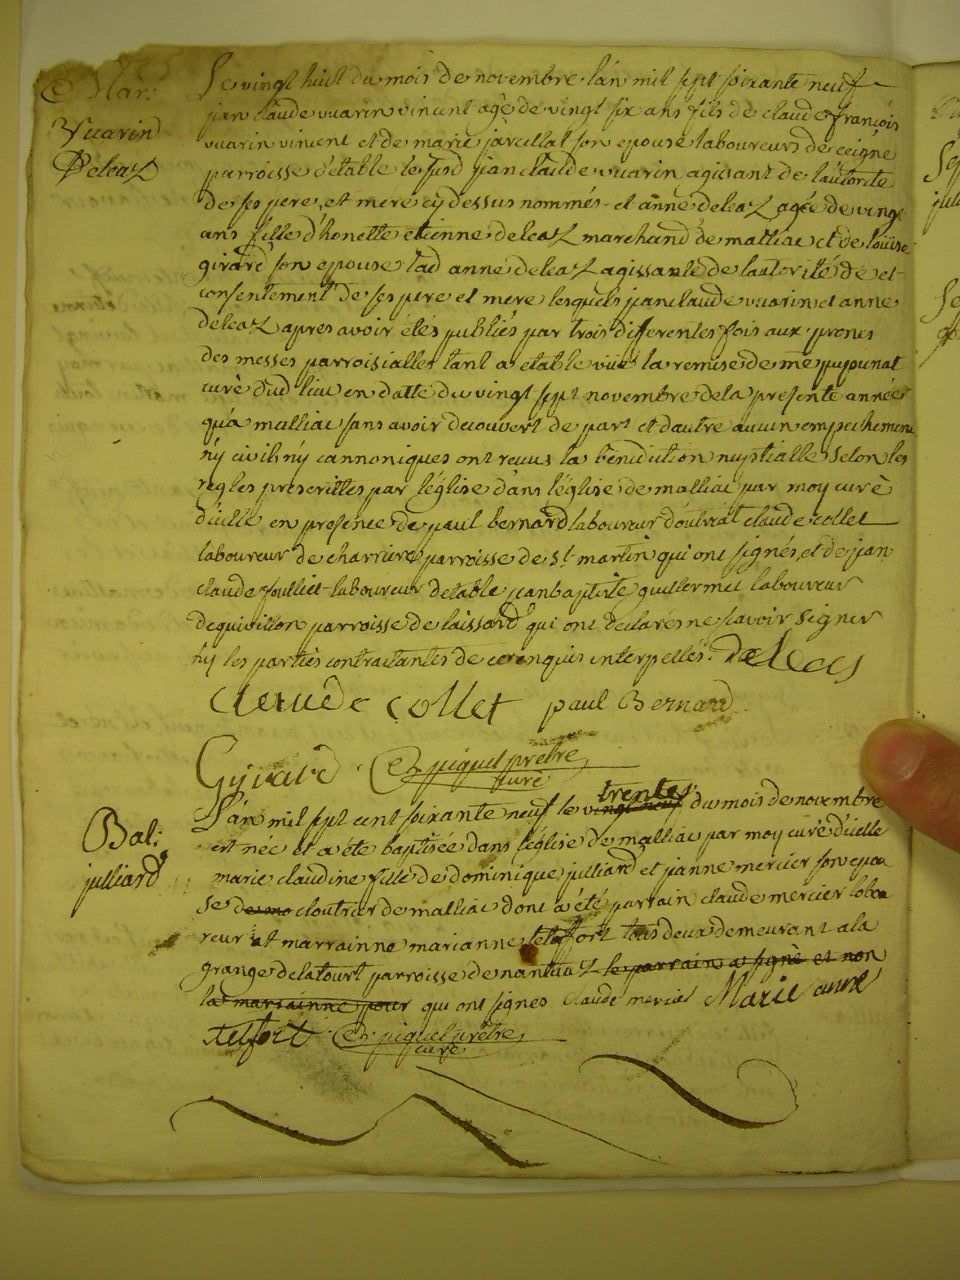 Mar:
Vuarin
Deleaz
Le vingt huit du mois de novembre l'an mil sept soixante neuf
jan claude vuarin vincent agé de vingt six ans fils de claude françois
vuarin vincent et de marie jarcellat son epouse laboureurs de ceigne
parroisse d'étable le susd jean claude vuarin agissant de l'autorité
de ses pere et mere cy dessus nommés et anne deleaz agée de vingt
ans fille d'honette etienne deleaz marchand de malliac et de loüise
girard son epouse lad anne deleaz agissante de l'autorité de et
consentement de ses pere et mere lesquels jean claude vuarin et anne
deleaz apres avoir étés publiés par trois differentes fois aux prones
des messes parroissialles tant a etable vüe la remise de me pujounat
curé dud lieu en datte du vingt sept novembre de la presente année
qu'a malliac sans avoir decouvert de part et d'autre aucun empechement
ny civil ny cannoniques ont recus la benediction nuptialle selon les
regles prescrittes par l'église dans l'église de malliac par moy curé
d'icelle en presence de paul bernard laboureur d'outriat claude collet
laboureur de charriere parroisse de st martin qui ont signés et de jan
claude foulliet laboureur d'etable jean baptiste guillermet laboureur
de quirillon parroisse de laissard qui ont declarés ne scavoir signer
ny les parties contractantes de ce requis interpellés. Deleas
claude collet paul Bernard
Gyrard piquet prêtre
curé
Bat:
julliard
L'an mil sept cent soixante neuf le vingt neuf trente du mois de novembre
est née et a été baptisée dans l'église de malliac par moy curé d'icelle
marie claudine fille de dominique julliard et jeanne mercier son epou
se cloutrier de malliac dont a été parrain claude mercier labou
reur et marrainne marianne teluffort tous deux demeurant a la
grange de la tourt parroisse de nantua le parrain a signé et non
la marrainne pour qui ont signes claude mercier Marie anne
teufort piquet prêtre
curé